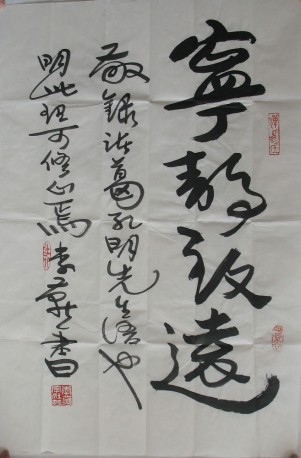 寧靜致遠
敬錄諸葛孔明先生語也
明此理可修心焉 李 書